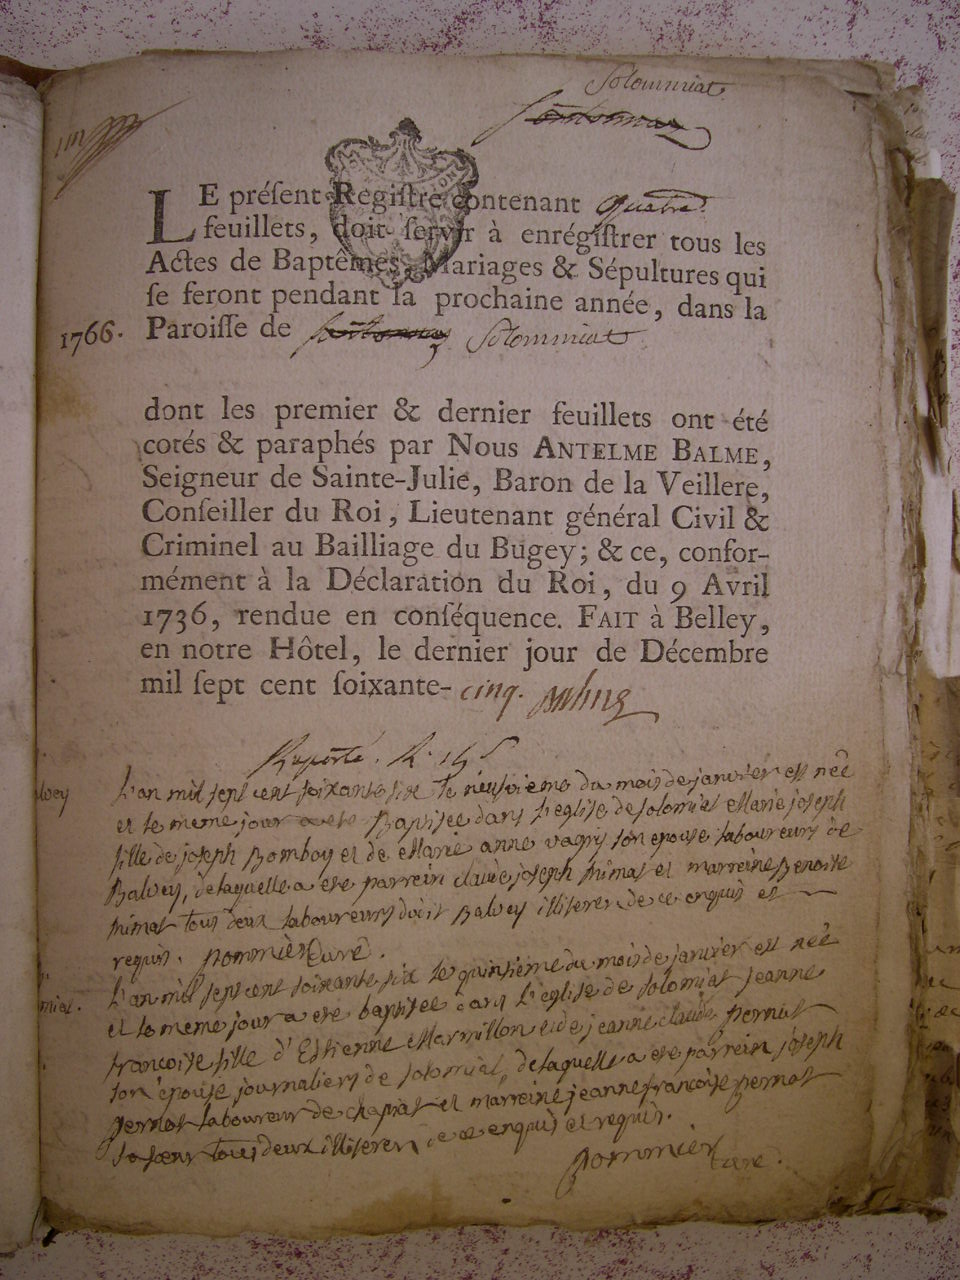 Solommiat
LE préſent Regiſtre contenant quatre
feuillets, doit ſervir à enrégiſtrer tous les
Actes de Baptêmes, Mariages & Sépultures qui
ſe feront pendant la prochaine année, dans la
1766. Paroiſſe de Solommiat
dont les premier & dernier feuillets ont été
cotés & paraphés par Nous ANTELME BALME,
Seigneur de Sainte-Julie, Baron de la Veillere,
Conſeiller du Roi, Lieutenant général Civil &
Criminel au Bailliage du Bugey; & ce, confor-
mément à la Déclaration du Roi, du 9 Avril
1736, rendue en conſéquence. FAIT à Belley,
en notre Hôtel, le dernier jour de Décembre
mil ſept cent ſoixante-cinq.
L'an mil sept cent soixante six le neufvieme du mois de janvier est née
et le meme jour a ete Baptisée dans l'eglise de solomiat Marie joseph
fille de joseph Bomboy et de Marie anne vagry son epouse laboureurs de
Balvey, de laquelle a ete parrein claude joseph humat et marreine Benoite
humat tous deux laboureurs dudit Balvey illiteres de ce enquis et
requis. pommier curé.
L'an mil sept cent soixante six le quinsieme du mois de janvier est née
et le meme jour a ete baptisée dans l'eglise de solomiat jeanne
francoise fille d'Estienne Marmillon et de jeanne claude pernat
son epouse journaliers de solomiat, de laquelle a ete parrein joseph
pernat laboureur de chapiat et marreine jeanne francoise pernat
sa soeur tous deux illiteres de ce enquis et requis.
pommier
curé.